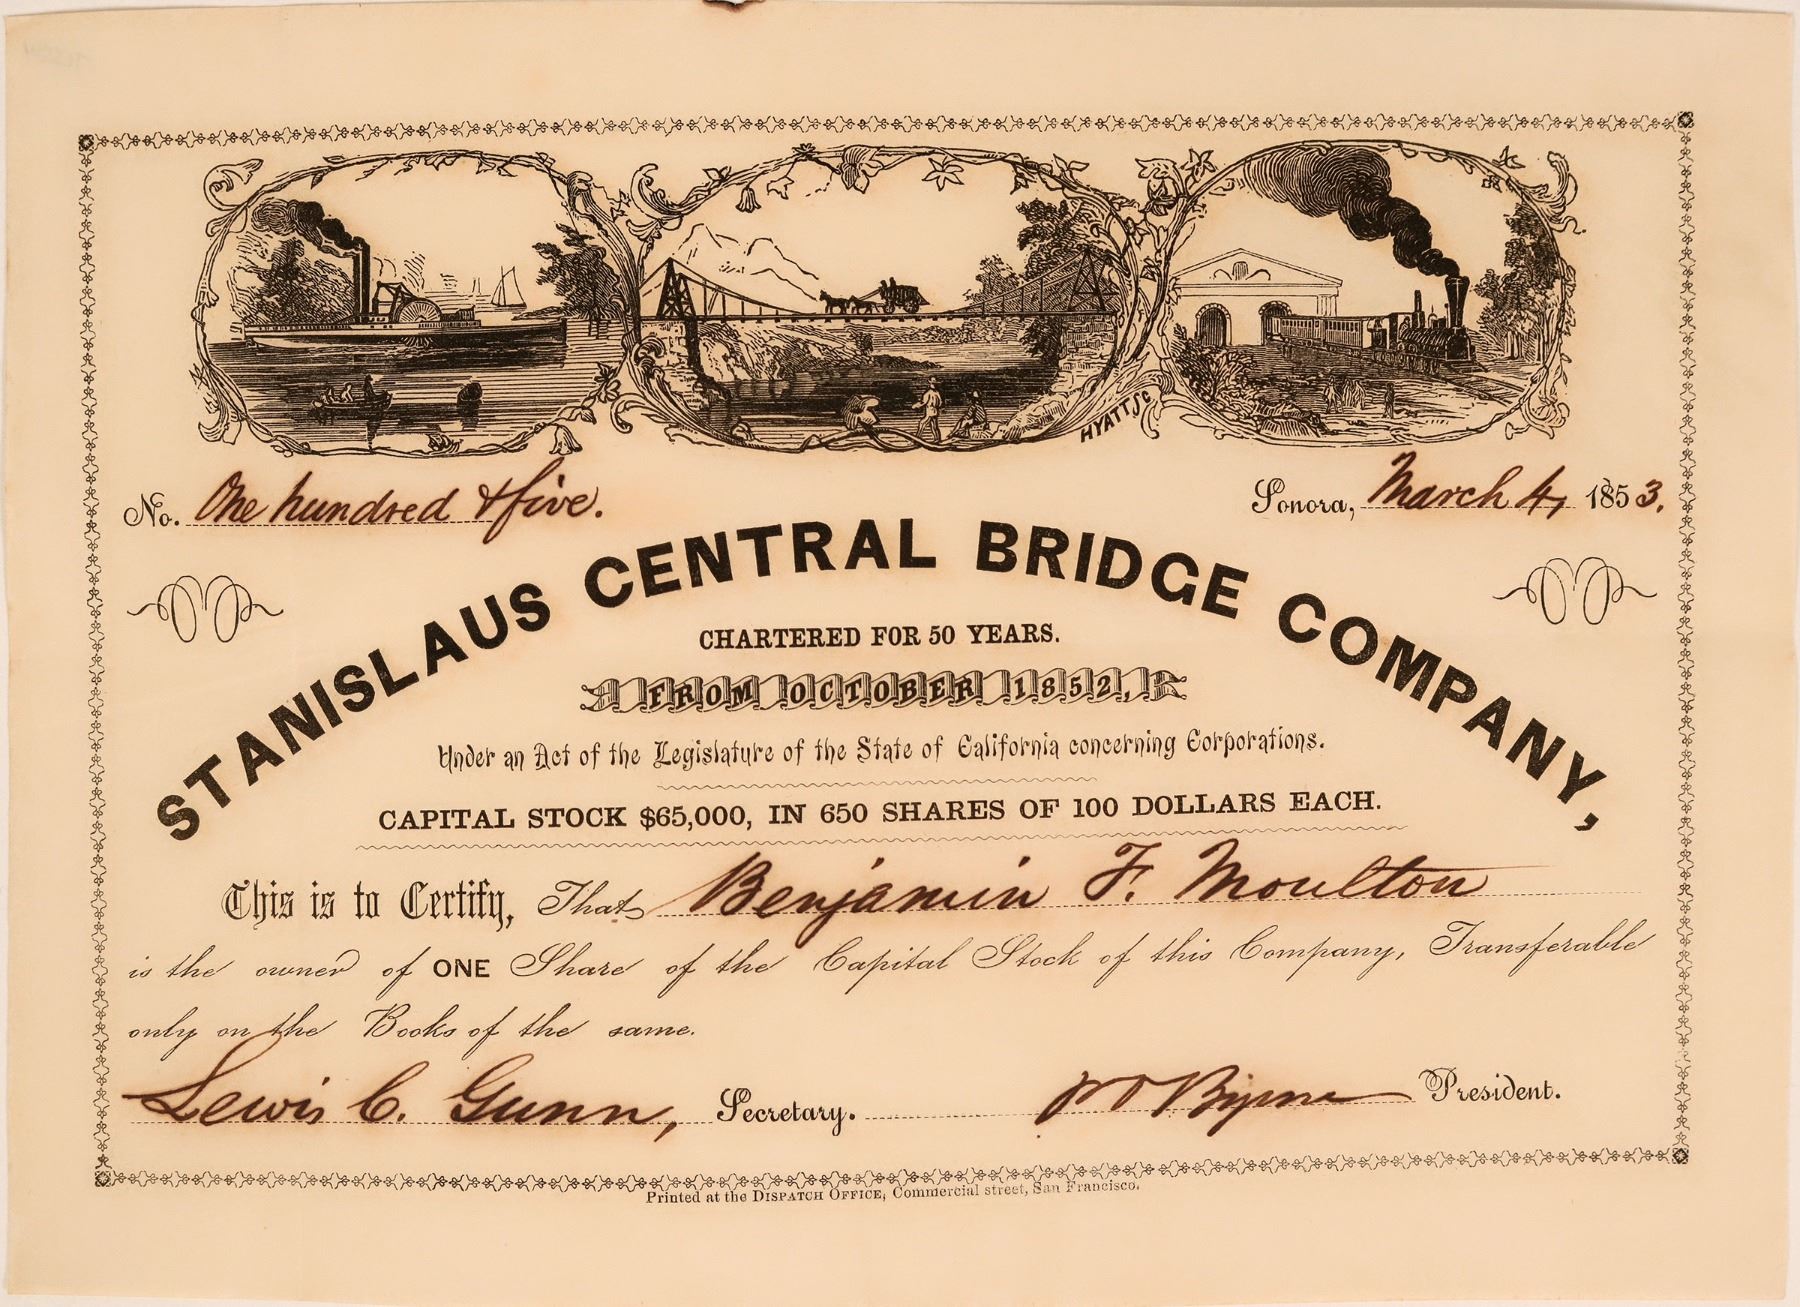 HYATT Sc
No. One hundred & five.
Sonora, March 4, 1853.
STANISLAUS CENTRAL BRIDGE COMPANY,
CHARTERED FOR 50 YEARS.
FROM OCTOBER 1852,
Under an Act of the Legislature of the State of California concerning Corporations.
CAPITAL STOCK $65,000, IN 650 SHARES OF 100 DOLLARS EACH.
This is to Certify, That Benjamin F. Moulton
is the owner of ONE Share of the Capital Stock of this Company, Transferable
only on the Books of the same.
Lewis C. Gunn, Secretary. Byrne President.
Printed at the DISPATCH OFFICE, Commercial street, San Francisco.